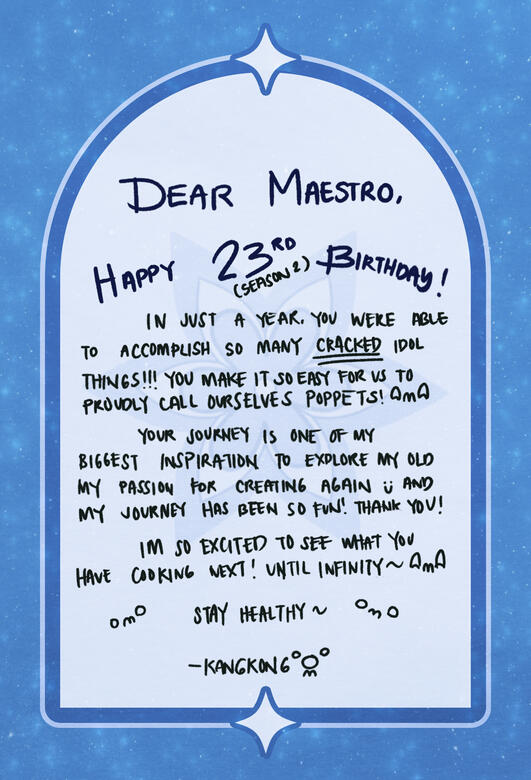 DEAR MAESTRO,
HAPPY 23RD BIRTHDAY!
(SEASON 2)
IN JUST A YEAR, YOU WERE ABLE
TO ACCOMPLISH SO MANY CRACKED IDOL
THINGS!!! YOU MAKE IT SO EASY FOR US TO
PROUDLY CALL OURSELVES POPPETS!
YOUR JOURNEY IS ONE OF MY
BIGGEST INSPIRATION TO EXPLORE MY OLD
MY PASSION FOR CREATING AGAIN ü AND
MY JOURNEY HAS BEEN SO FUN! THANK YOU!
IM SO EXCITED TO SEE WHAT YOU
HAVE COOKING NEXT! UNTIL INFINITY~
STAY HEALTHY~
-KANGKONG